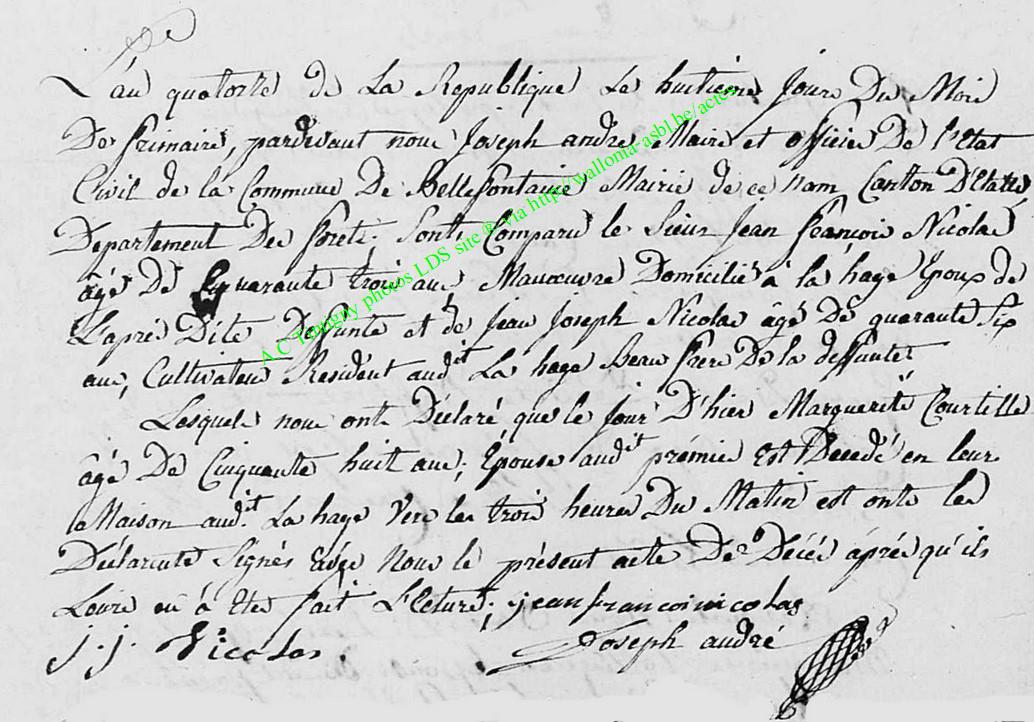 L'an quatorze de La Republique Le huitiéme Jour Du Mois
De frimaire, pardevant nous Joseph andre Maire et officier De l'Etat
Civil de la Commune De Bellefontaine Mairie de ce nam Canton D'Etalle
Departement Des forets. Sonts Comparu le Sieur Jean françois Nicolas
âgé De quarante trois ans Manœuvre Domicilié à la hage Epoux de
L'aprés Dite Deffunte et de Jean Joseph Nicolas âgé De quarante Six
ans, Cultivateur Resident audit La hage Beau frere De la deffunte
Lesquels nous onts Déclaré que le Jour D'hier Marguerite Courtille
âgé De Cinquante huit ans, Epouse audit prémie Est Decedé en leur
Maison audit La hage Vers les trois heures Du Matin est onts les
Déclarants Signés avec Nous le présent acte De Décés áprés qu'ils
Leure en à Etes fait L'leture, jean francoi nicolas
j. j. Nicolas Joseph andré
A.C Tintigny photos LDS site ® via http://wallonia-asbl.be/actes